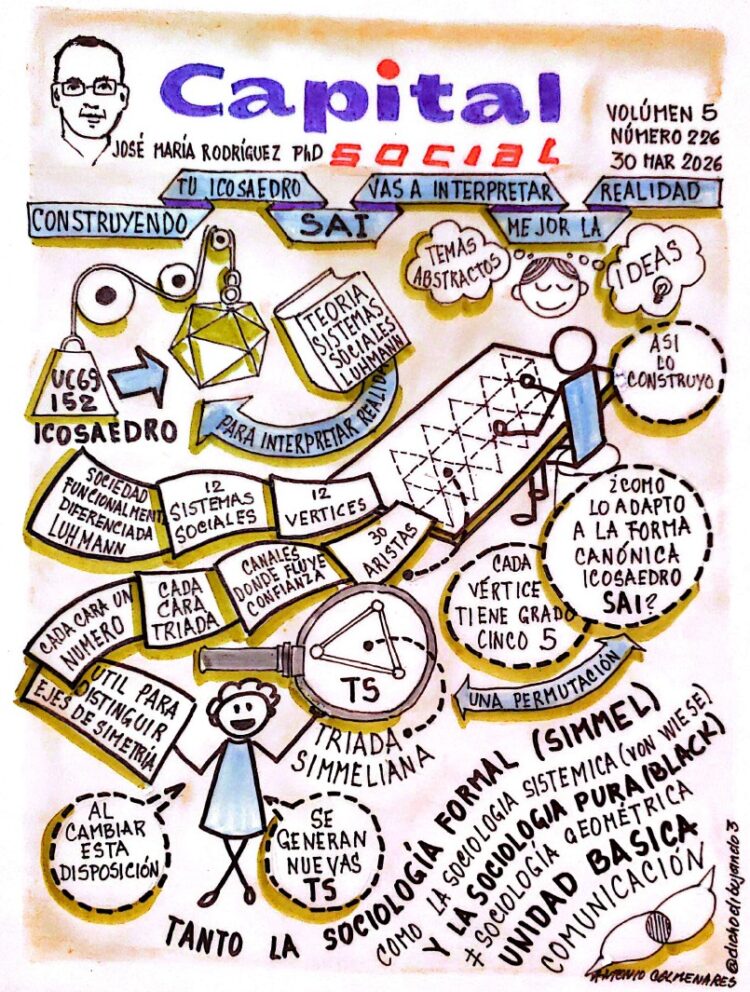 Capital
SOCIAL
JOSÉ MARÍA RODRÍGUEZ PhD
VOLÚMEN 5
NÚMERO 226
30 MAR 2026
CONSTRUYENDO
TU ICOSAEDRO
SAI
VAS A INTERPRETAR
MEJOR LA
REALIDAD
TEMAS
ABSTRACTOS
IDEAS
UCG9
152
ICOSAEDRO
TEORIA
SISTEMAS
SOCIALES
LUHMANN
PARA INTERPRETAR REALIDAD
ASI
LO
CONSTRUYO
SOCIEDAD
FUNCIONALMENTE
DIFERENCIADA
LUHMANN
12
SISTEMAS
SOCIALES
12
VERTICES
30
ARISTAS
CANALES
DONDE FLUYE
CONFIANZA
CADA
CARA
TRIADA
CADA CARA UN
NUMERO
UTIL PARA
DISTINGUIR
EJES DE SIMETRIA
CADA
VÉRTICE
TIENE GRADO
CINCO 5
¿COMO
LO ADAPTO
A LA FORMA
CANÓNICA
ICOSAEDRO
SAI?
UNA PERMUTACIÓN
TS
TRIADA
SIMMELIANA
AL
CAMBIAR
ESTA
DISPOSICIÓN
SE
GENERAN
NUEVAS
TS
TANTO LA SOCIOLOGÍA FORMAL (SIMMEL)
COMO LA SOCIOLOGIA SISTEMICA (VON WIESE)
Y LA SOCIOLOGIA PURA (BLACK)
# SOCIOLOGÍA GEOMÉTRICA
UNIDAD BASICA
COMUNICACIÓN
ANTONIO COLMENARES
@dichoedibujando3